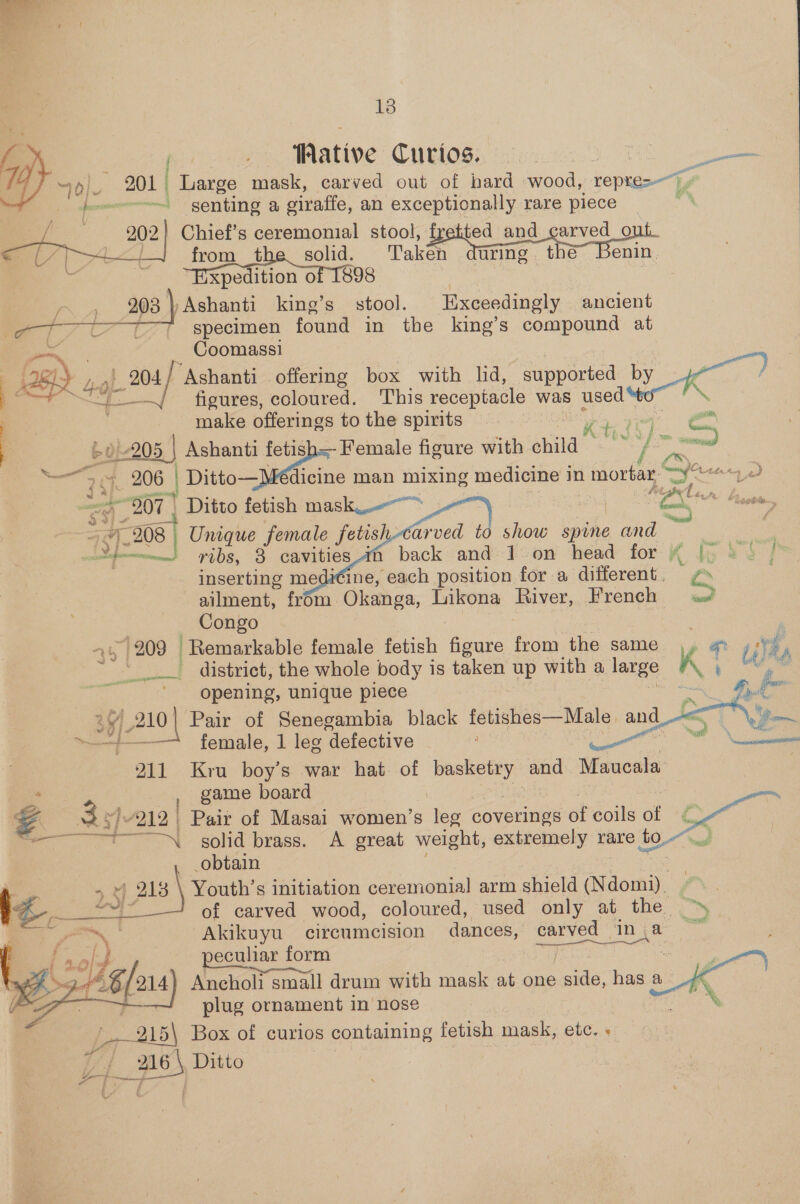 13
Native Curios.
201 Large mask, carved out of hard wood, repre-
senting a giraffe, an exceptionally rare piece
202 Chief's ceremonial stool, fretted and carved out
from the solid. Taken during the Benin
Expedition of 1898
203 Ashanti king's stool. Exceedingly ancient
specimen found in the king's compound at
Coomassi
204 Ashanti offering box with lid, supported by
figures, coloured. This receptacle was used to
make offerings to the spirits
205 Ashanti fetish—Female figure with child
206 Ditto—Médicine man mixing medicine in mortar
207 Ditto fetish mask
208 Unique female fetish carved to show spine and
ribs, 3 cavities in back and 1 on head for
inserting medicine, each position for a different
ailment, from Okanga, Likona River, French
Congo
209 Remarkable female fetish figure from the same
district, the whole body is taken up with a large
opening, unique piece
210 Pair of Senegambia black fetishes—Male and
female, 1 leg defective
211 Kru boy's war hat of basketry and Maucala
game board
212 Pair of Masai women's leg coverings of coils of
solid brass. A great weight, extremely rare to
obtain
213 Youth's initiation ceremonial arm shield (Ndomi)
of carved wood, coloured, used only at the
Akikuyu circumcision dances, carved in a
peculiar form
214 Ancholi small drum with mask at one side, has a
plug ornament in nose
215 Box of curios containing fetish mask, etc.
216 Ditto